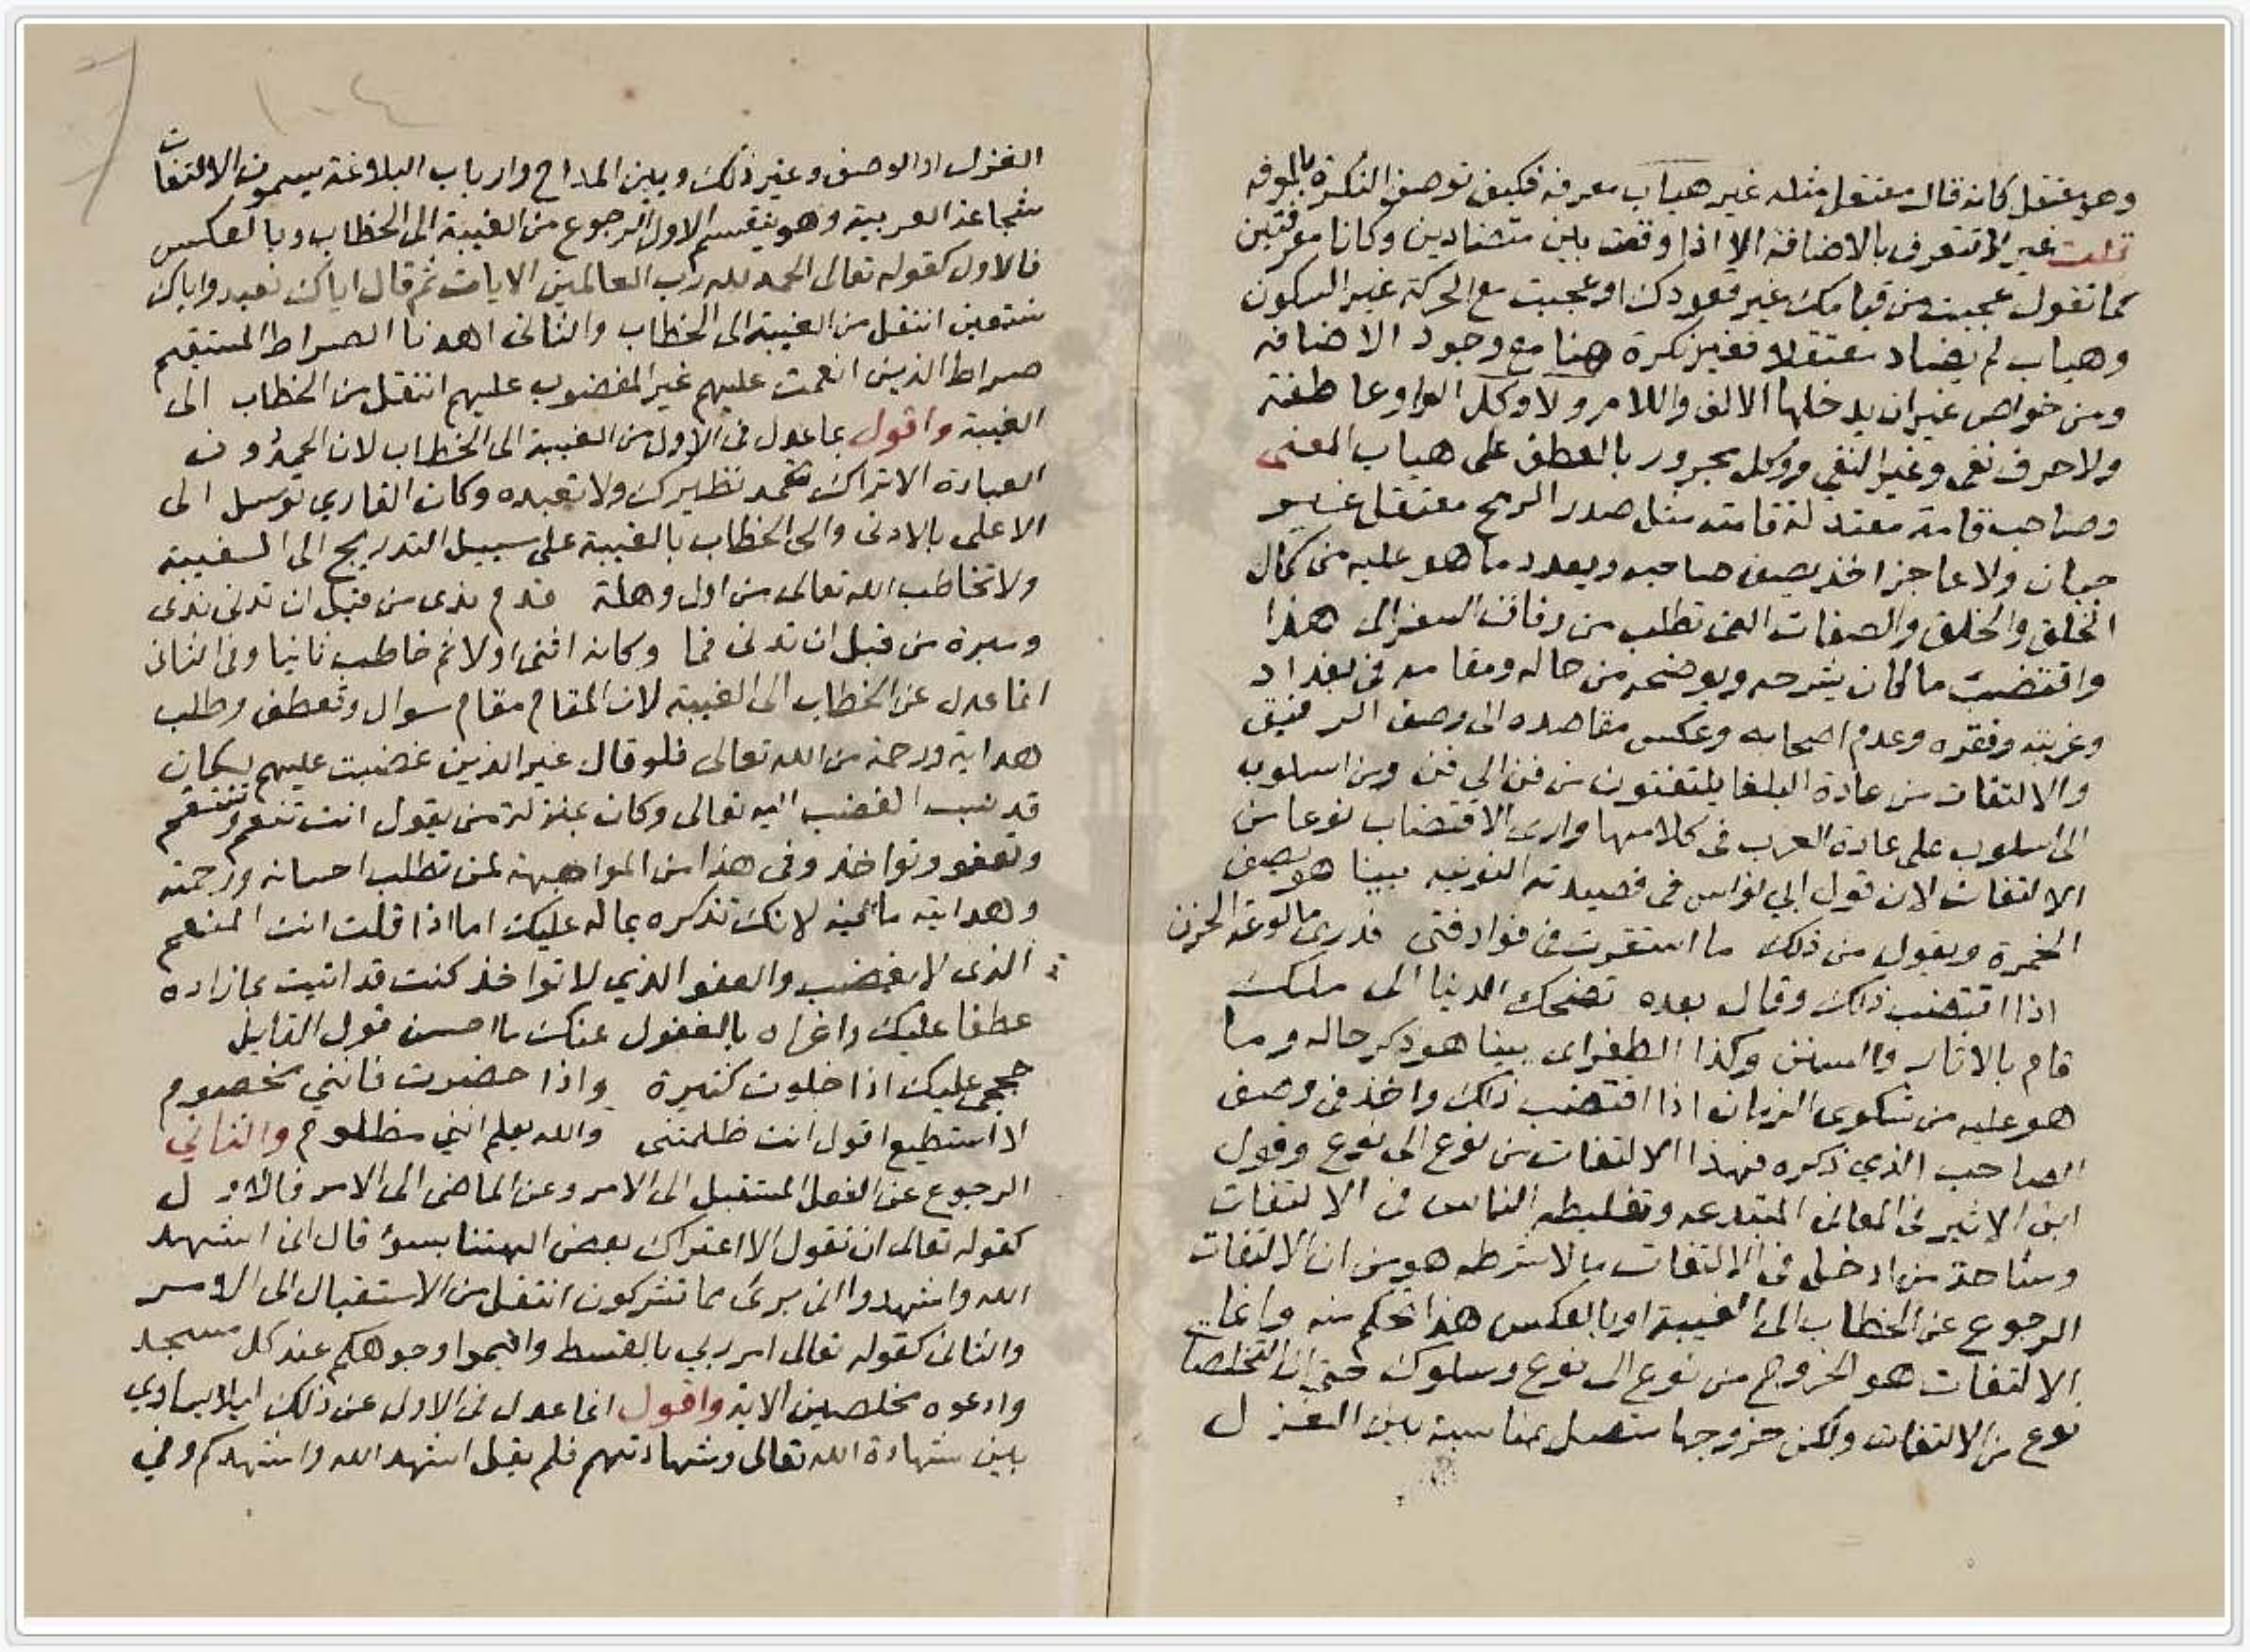 وهو معتقل كانه قال معتقل مثله غير هياب معرفه فكيف توصف النكرة بالمعرفه
قلت غير لا تتعرف بالاضافة الا اذا وقعت بين متضادين وكانا معرفتين
كما تقول عجبت من قيامك غير قعودك او عجبت مع الحركة غير السكون
وهياب لم يضاد معتقلا فغير نكرة هنا مع وجود الاضافه
ومن خواص غير ان يدخلها الالف واللام ولا وكل الواو عاطفة
ولا حرف نفى وغير النفي ووكل مجرور بالعطف على هياب المعنى
وصاحب قامة معتدلة قامته مثل صدر الرمح معتقل غير
جبان ولا عاجز اخذ يصف صاحبه ويعدد ما هو عليه من كمال
الخلق والخلق والصفات التى تطلب من رفاق السفر الى هذا
واقتضب ما كان يشرحه ويوضحه من حاله ومقامه فى بغداد
وغربته وفقره وعدم اصحابه وعكس مقاصده الى وصف الرفيق
والالتفات من عادة البلغا يلتفتون من فن الى فن ومن اسلوب
الى اسلوب على عادة العرب فى كلامها وارى الاقتضاب نوعا من
الالتفات الان قول ابي نواس فى قصيدته النونيه بينا هو يصف
الخمرة ويقول من ذلك ما استقرت فى فواد فتى فدرى ما لوعة الحزن
اذا اقتضب ذلك وقال بعده تضحك الدنيا الى ملك
قام بالاثار والسنن وكذا الطغراى بينا هو ذكر حاله وما
هو عليه من شكوى الزمان اذا اقتضب ذلك واخذ فى وصف
الصاحب الذي ذكره فهذا الالتفات من نوع الى نوع وقول
ابن الاثير فى المعانى المبتدعه وتغليطه الناس فى الالتفات
ومشاحة من ادخل فى الالتفات ما لا شرطه هو من ان الالتفات
الرجوع عن الخطاب الى الغيبة او بالعكس هذا تحكم منه وانما
الالتفات هو الخروج من نوع الى نوع وسلوك حتى ان التخلصات
نوع من الالتفات ولكن خروجها متصل بمناسبة بين الغزل
الغزل او الوصف وغير ذلك وبين المداح وارباب البلاغة يسمون الالتفات
شجاعة العربية وهو ينقسم الاول الرجوع من الغيبة الى الخطاب وبالعكس
فالاول كقوله تعالى الحمد لله رب العالمين الايات ثم قال اياك نعبد واياك
نستعين انتقل من الغيبة الى الخطاب والثانى اهدنا الصراط المستقيم
صراط الذين انعمت عليهم غير المغضوب عليهم انتقل من الخطاب الى
الغيبة واقول بما عدل فى الاول من الغيبة الى الخطاب لان الحمد دون
العبادة الا تراك تحمد نظيرك ولا تعبده وكان القاري توسل الى
الاعلى بالادنى والى الخطاب بالغيبة على سبيل التدريج الى الغيبة
ولا تخاطب الله تعالى من اول وهلة قدم يدى من قبل ان تدنى يدى
وسره من قبل ان تدنى فما وكانه اثنى اولا ثم خاطب ثانيا وفى الثانى
انما عدل عن الخطاب الى الغيبة لان المقام مقام سوال وتعطف وطلب
هداية ورحمة من الله تعالى فلو قال غير الذين غضبت عليهم لكان
قد نسب الغضب اليه تعالى وكان بمنزلة من يقول انت تنعم وتنتقم
وتعفو وتواخذ وفى هذا من المواجهة لمن تطلب احسانه ورحمته
وهدايته ما فيه لانك تذكره بماله عليك اما اذا قلت انت المنعم
الذى لا يغضب والعفو الذي لا تواخذ كنت قد اتيت بما زاده
عطفا عليك واغراه بالغفول عنك ما احسن قول القايل
حججى عليك اذا خلوت كثيرة واذا حضرت فانني مخصوم
لا استطيع اقول انت ظلمتنى والله يعلم انني مظلوم والثاني
الرجوع عن الفعل المستقبل الى الامر وعن الماضى الى الامر فالاول
كقوله تعالى ان نقول الا اعتراك بعض الهتنا بسوء قال انى اشهد
الله واشهدوا انى برى مما تشركون انتقل من الاستقبال الى الامر
والثانى كقوله تعالى امر ربي بالقسط واقيموا وجوهكم عند كل مسجد
وادعوه مخلصين الاية واقول انما عدل فى الاول عن ذلك ليلا يساوي
بين شهادة الله تعالى وشهادتهم فلم يقل اشهد الله واشهدكم وفي